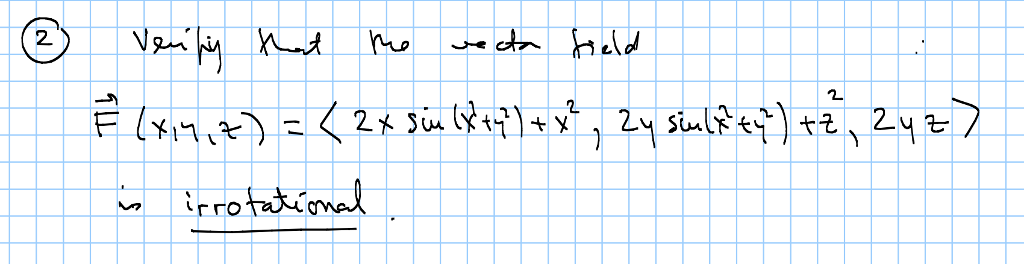 ② Verify that the vector field
F⃗ (x,y,z) = ⟨ 2x sin(x²+y²) + x² , 2y sin(x²+y²) + z² , 2yz ⟩
is irrotational.